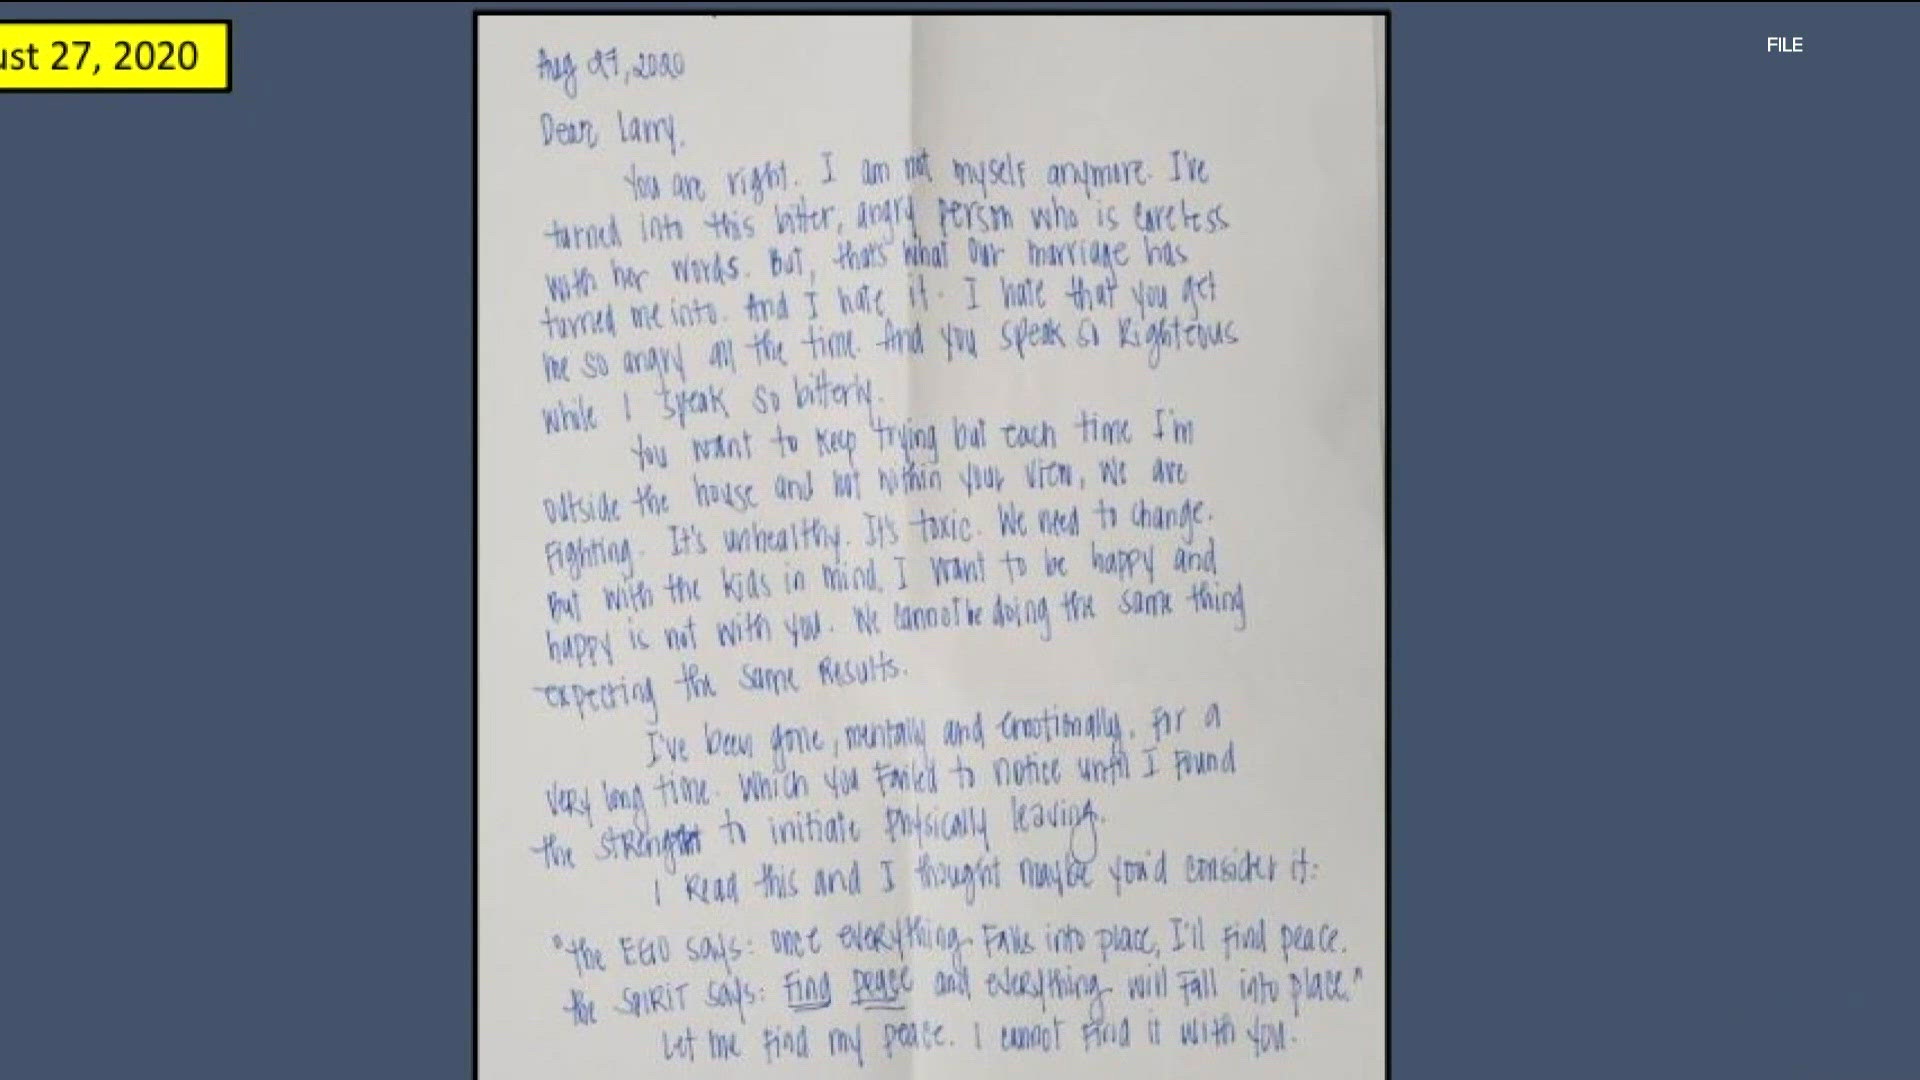 ust 27, 2020
FILE
Aug 27, 2020
Dear Larry,
You are right. I am not myself anymore. I've
turned into this bitter, angry person who is careless
with her words. But, that's what our marriage has
turned me into. And I hate it. I hate that you get
me so angry all the time. And you speak so Righteous
while I speak so bitterly.
You want to keep trying but each time I'm
outside the house and not within your view, we are
Fighting. It's unhealthy. It's toxic. We need to change.
But with the kids in mind, I want to be happy and
happy is not with you. We cannot be doing the same thing
expecting the same Results.
I've been gone, mentally and emotionally. For a
very long time. Which you Failed to notice until I Found
the strenght to initiate physically leaving.
I Read this and I thought maybe you'd consider it:
"the EGO says: once everything Falls into place, I'll Find peace.
the SPIRIT says: Find peace and everything will Fall into place."
Let me Find my peace. I cannot Find it with you.